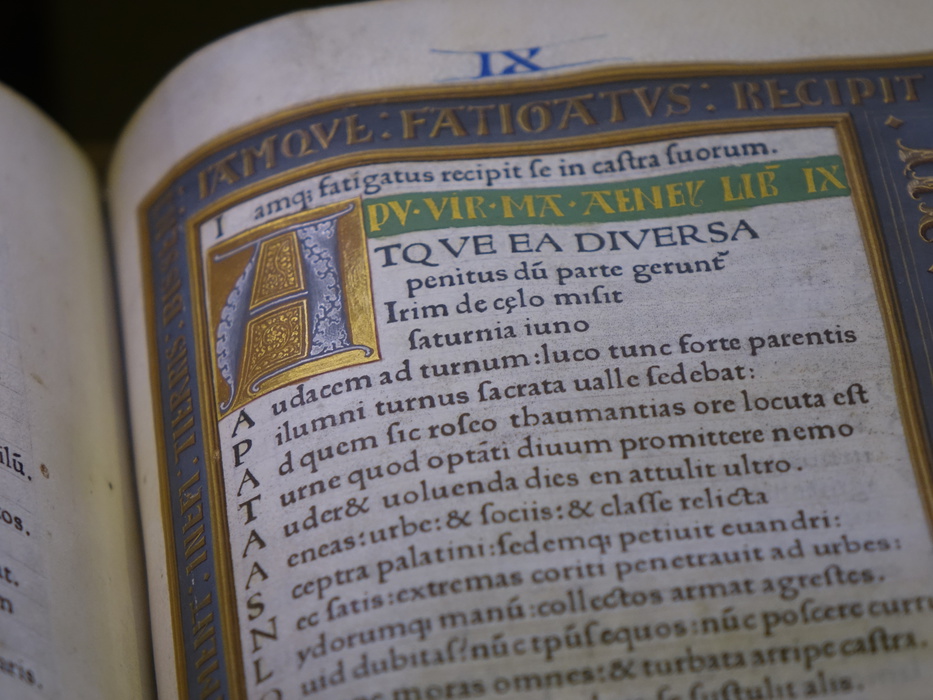 IX
IAMQVE : FATIGATVS : RECIPIT
I amq; fatigatus recipit ſe in caſtra ſuorum.
PV · VIR · MA · AENEI LIB̄ IX
ATQVE EA DIVERSA
penitus dū parte gerunt̃
Irim de cęlo miſit
ſaturnia iuno
A udacem ad turnum : luco tunc forte parentis
P ilumni turnus ſacrata ualle ſedebat :
A d quem ſic roſeo thaumantias ore locuta eſt
T urne quod optāti diuum promittere nemo
A uder& uoluenda dies en attulit ultro .
A eneas : urbe : & ſociis : & claſſe relicta
S ceptra palatini : ſedemq; petiuit euandri :
N ec ſatis : extremas coriti penetrauit ad urbes :
L ydorumq; manū : collectos armat agreſtes .
uid dubitaſ? nūc tp̄uſ equos : nūc poſcere curr
moras omnes : & turbata arripe caſtra.
ſuſtulit alis.
ilū.
tos.